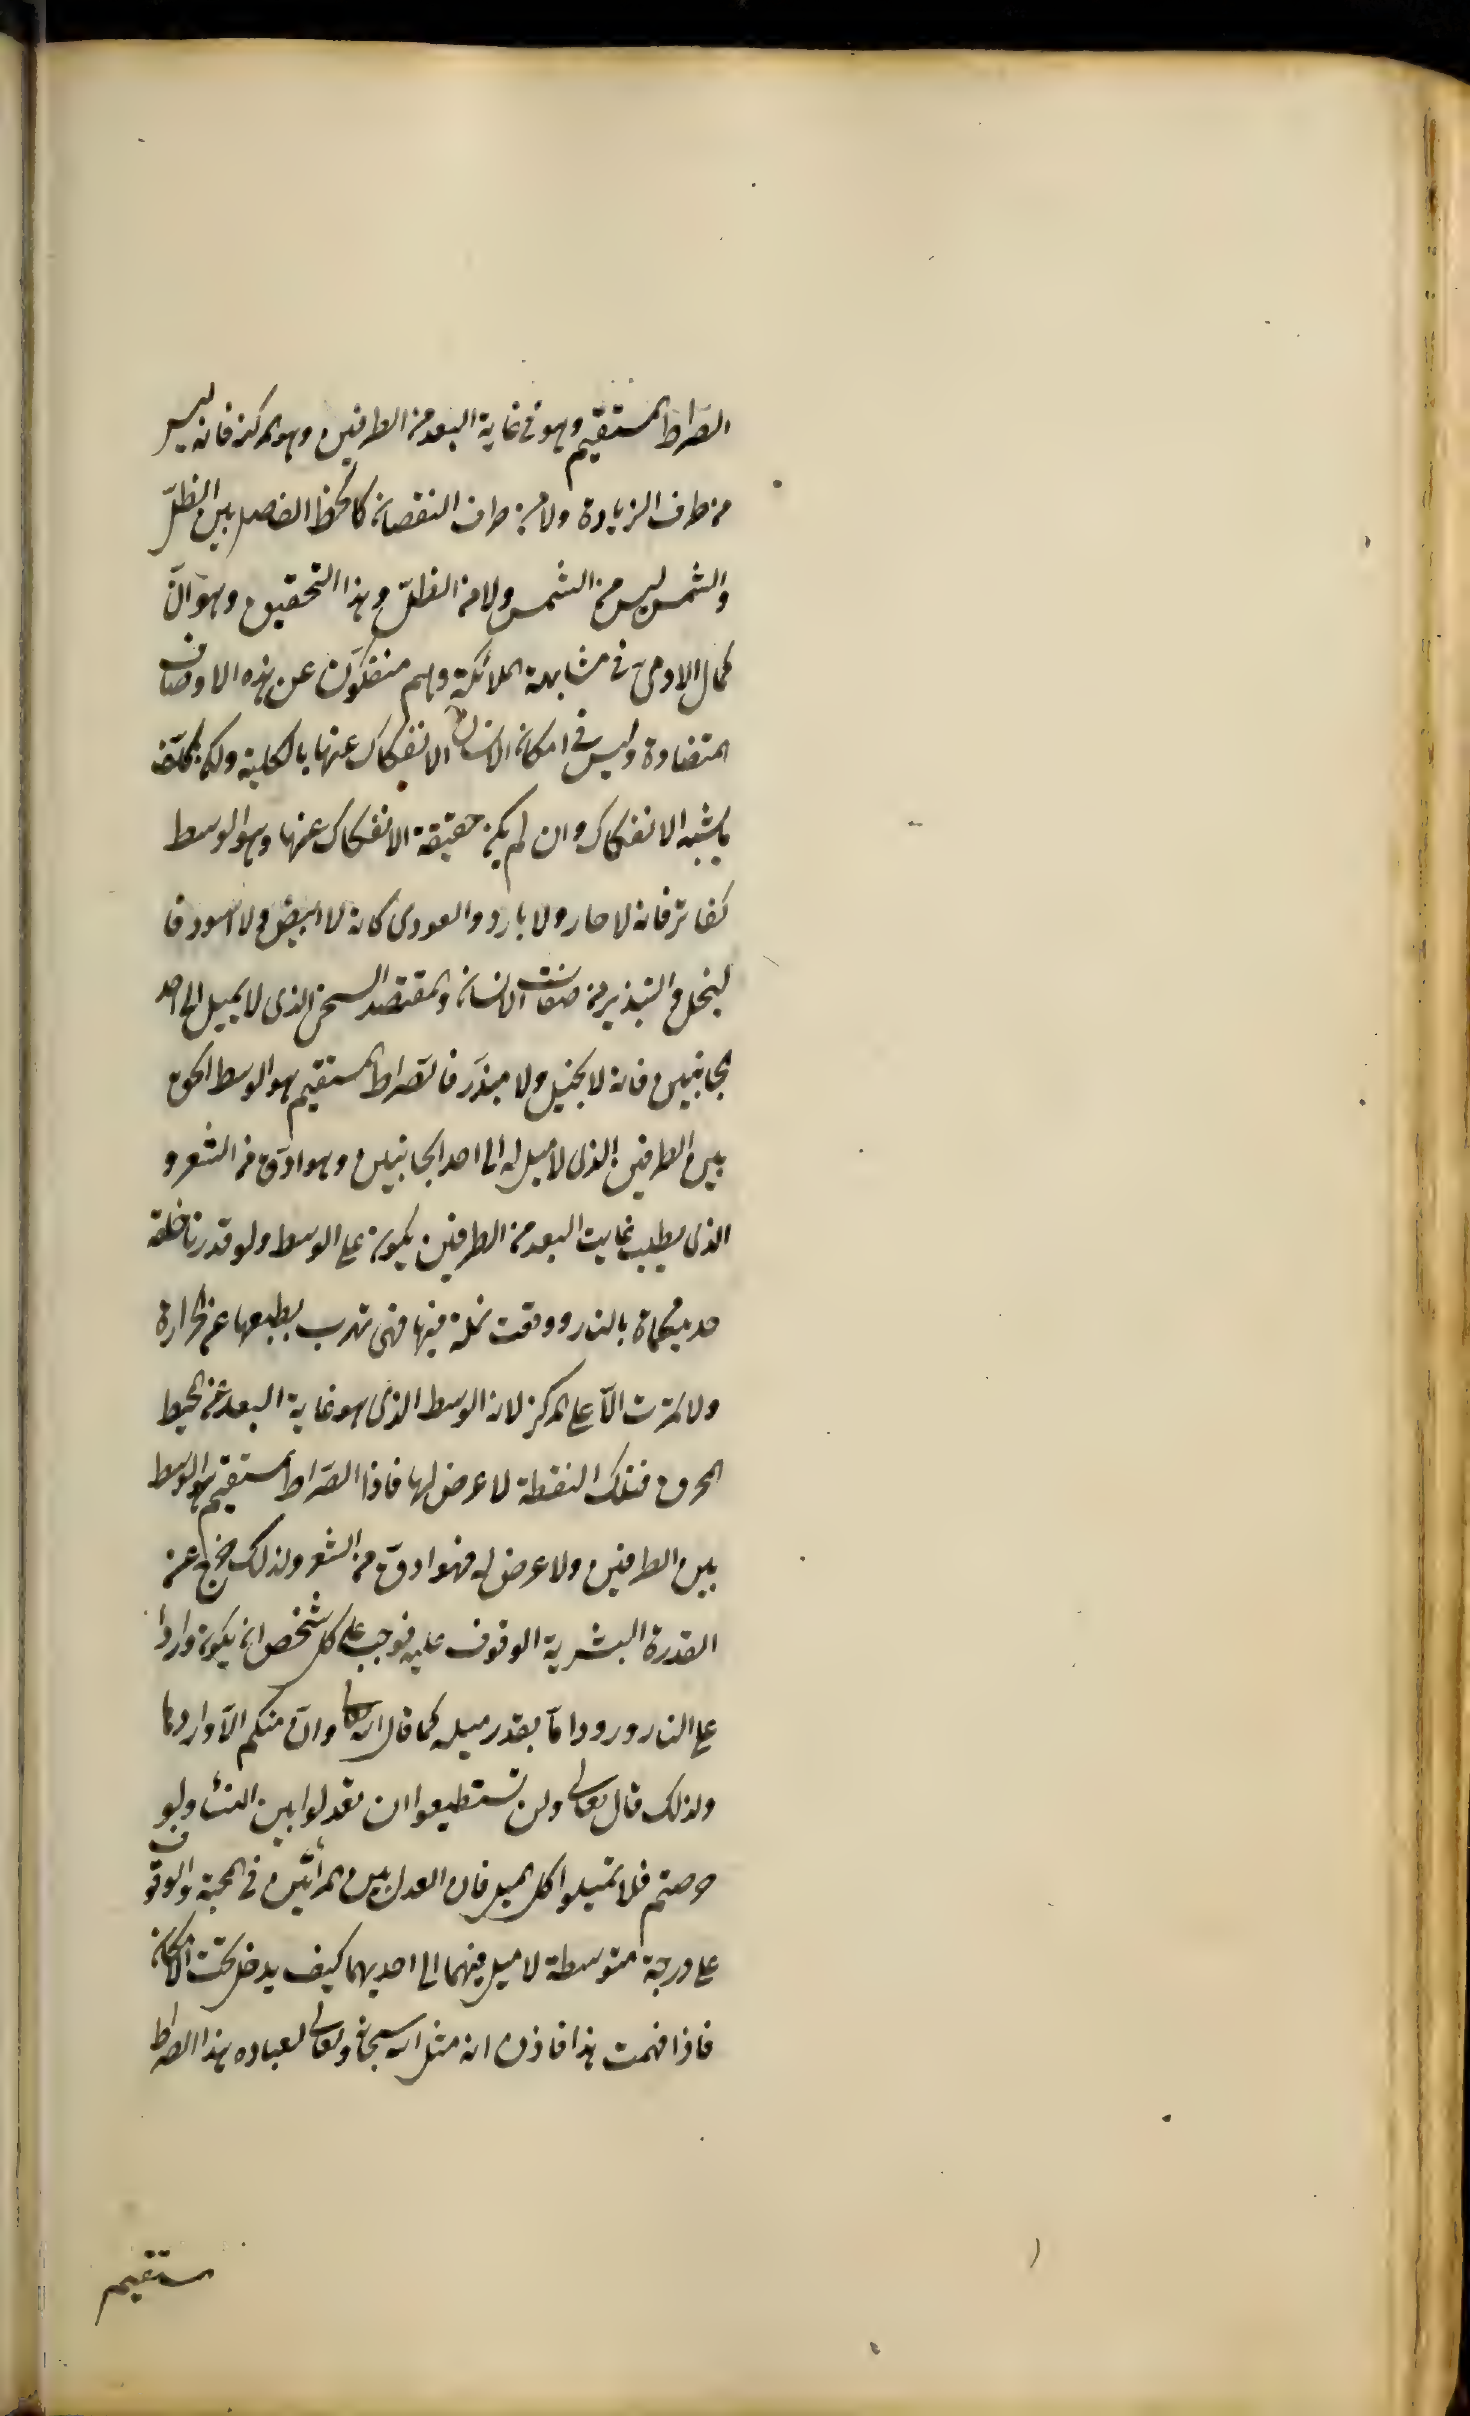 الصّراط المستقيم وهو فى غاية البعد من الطرفين وهو المركز فانه ليس
من طرف الزيادة ولا من طرف النقصان كالخط الفاصل بين الظلّ
والشمس ليس من الشمس ولا من الظلّ وهذا التحقيق وهو انّ
كمال الادمى فى مشابهة الملائكة وهم منفكّون عن هذه الاوصاف
المتضادة وليس فى امكان الانسان الانفكاك عنها بالكلية ولكن تكلّف
ما يشبه الانفكاك وان لم يكن حقيقة الانفكاك عنها وهو الوسط
كفاتر فانه لا حار ولا بارد والعودى كانه لا ابيض ولا اسود فا
لبخل و التبذير من صفات الانسان والمقتصد السخى الذى لا يميل الى احد
الجانبين فانه لا بخيل ولا مبذّر فالصّراط المستقيم هو الوسط الحق
بين الطرفين الذى لا ميل له الى احد الجانبين وهو ادقّ من الشعر و
الذى يطلب غايت البعد من الطرفين يكون على الوسط ولو قدرنا حلقة
حديد محماة بالنار ووقعت نملة فيها فهى تهرب بطبعها عن الحرارة
ولا تمرت الّا على المركز لانه الوسط الذى هو غاية البعد عن المحيط
المحرق فتلك النقطة لا عرض لها فاذا الصّراط المستقيم هو الوسط
بين الطرفين ولا عرض له فهو ادقّ من الشعر ولذلك خرج عن
القدرة البشرية الوقوف عليه فوجب على كل شخص ان يكون واردا
على النار ورودا مّا بقدر ميله كما قال الله تعالى وان منكم الّا واردها
ولذلك قال تعالى ولن تستطيعوا ان تعدلوا بين النساء ولو
حرصتم فلا تميلوا كل الميل فان العدل بين المرأتين فى المحبة والوقوف
على درجة متوسطة لا ميل فيهما الى احديهما كيف يدخل تحت الامكان
فاذا فهمت هذا فاذن انه مثل الله سبحانه وتعالى لعباده هذا الصراط
مستقيم